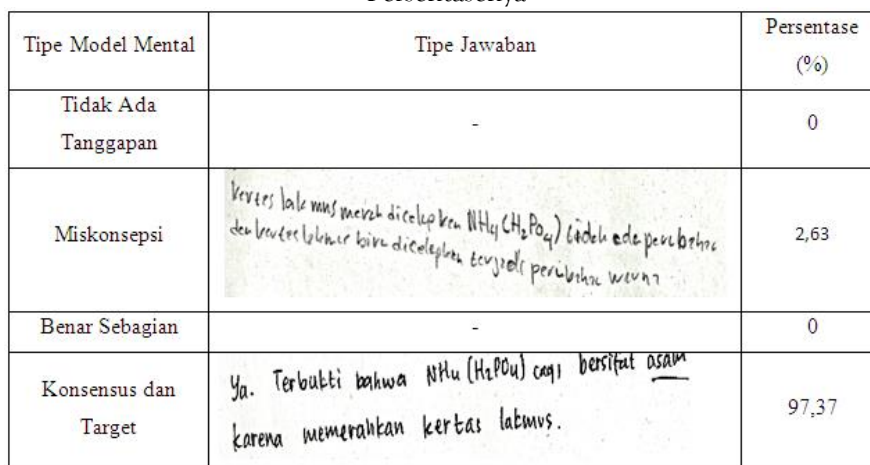 Persentasenya
Tipe Model Mental
Tipe Jawaban
Persentase
(%)
Tidak Ada
Tanggapan
-
0
Miskonsepsi
Kertas lakmus merah dicelupkan NH4(H2PO4) tidak ada perubahan
dan kertas lakmus biru dicelupkan terjadi perubahan warna
2,63
Benar Sebagian
-
0
Konsensus dan
Target
Ya. Terbukti bahwa NH4(H2PO4) (aq) bersifat asam
karena memerahkan kertas lakmus.
97,37